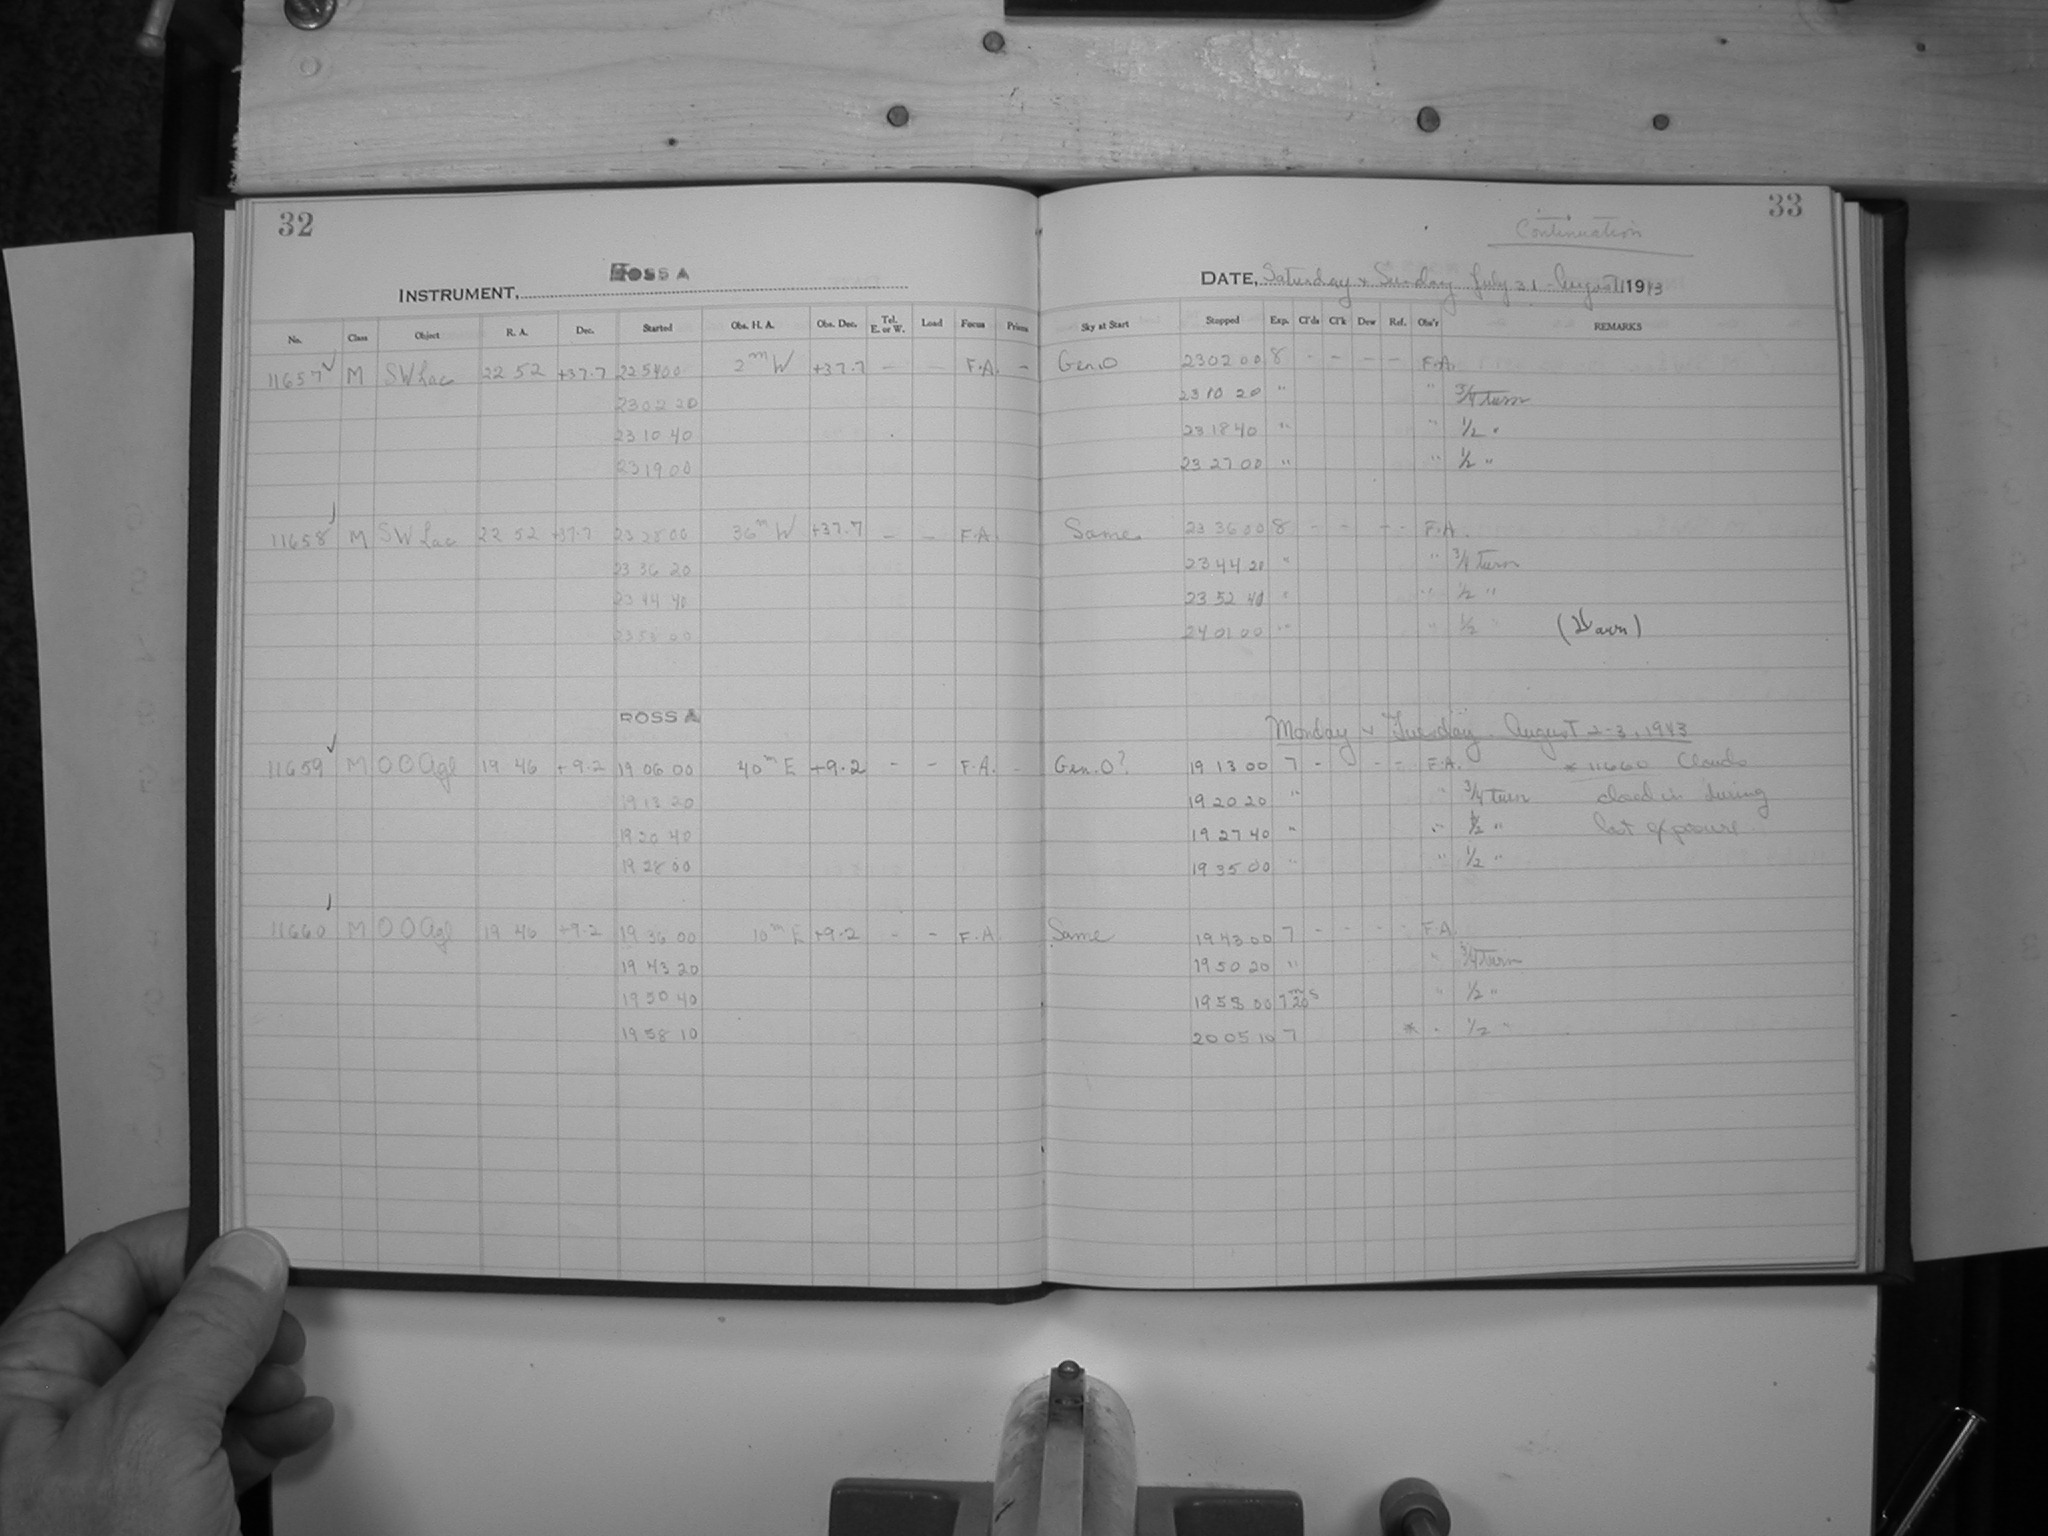 32
INSTRUMENT, ROSS A
No. Class Object R. A. Dec. Started Obs. H. A. Obs. Dec. Tel. E. or W. Load Focus Prism
11657 ✓ M SW Lac 22 52 +37.7 22 54 00 2m W +37.7 – – F.A. –
23 02 20
23 10 40
23 19 00
11658 M SW Lac 22 52 +37.7 23 28 00 36m W +37.7 – – F.A.
23 36 20
23 44 40
23 53 00
ROSS A
11659 ✓ M OO Aql 19 46 +9.2 19 06 00 40m E +9.2 - - F.A. -
19 13 20
19 20 40
19 28 00
11660 M OO Aql 19 46 +9.2 19 36 00 10m E +9.2 - - F.A.
19 43 20
19 50 40
19 58 10
33
Continuation
DATE, Saturday & Sunday July 31 - August 1 1943
Sky at Start Stopped Exp. Cl'ds Cl'k Dew Ref. Obs'r REMARKS
Gen. O 23 02 00 8 - - - - F.A.
23 10 20 " " 3/4 turn
23 18 40 " " 1/2 "
23 27 00 " " 1/2 "
Same 23 36 00 8 - - - - F.A.
23 44 20 " " 3/4 turn
23 52 40 " " 1/2 "
24 01 00 " " 1/2 " (Dawn)
Monday & Tuesday. August 2-3, 1943
Gen. O? 19 13 00 7 - - - F.A. * 11660 Clouds
19 20 20 " " 3/4 turn closed in during
19 27 40 " " 1/2 " last exposure
19 35 00 " " 1/2 "
Same 19 43 00 7 - - - - F.A.
19 50 20 " " 3/4 turn
19 58 00 7m 20s " 1/2 "
20 05 10 7 * " 1/2 "